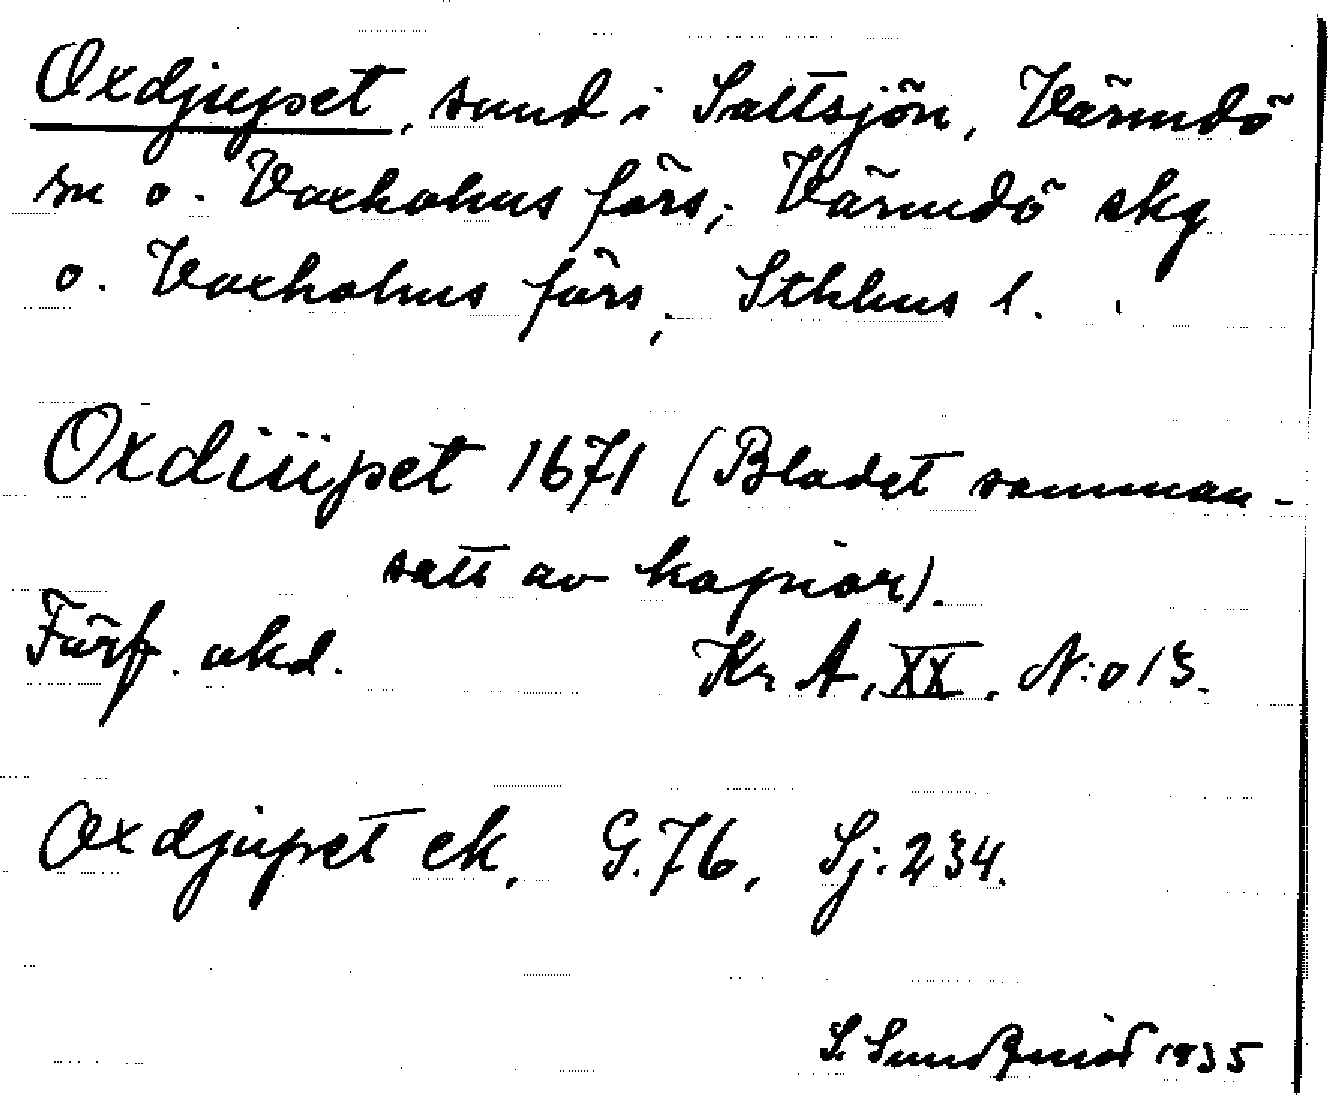 Oxdjupet, sund i Saltsjön, Värmdö
sn o. Vaxholms förs; Värmdö skg
o. Vaxholms förs, Sthlms l.
Oxdiüpet 1671 (Bladet samman-
satt av kopior).
Förf. okd. Kr A, XX. N:o 13.
Oxdjupet ek. G.76. Sj: 234.
S. Sundqvist 1935